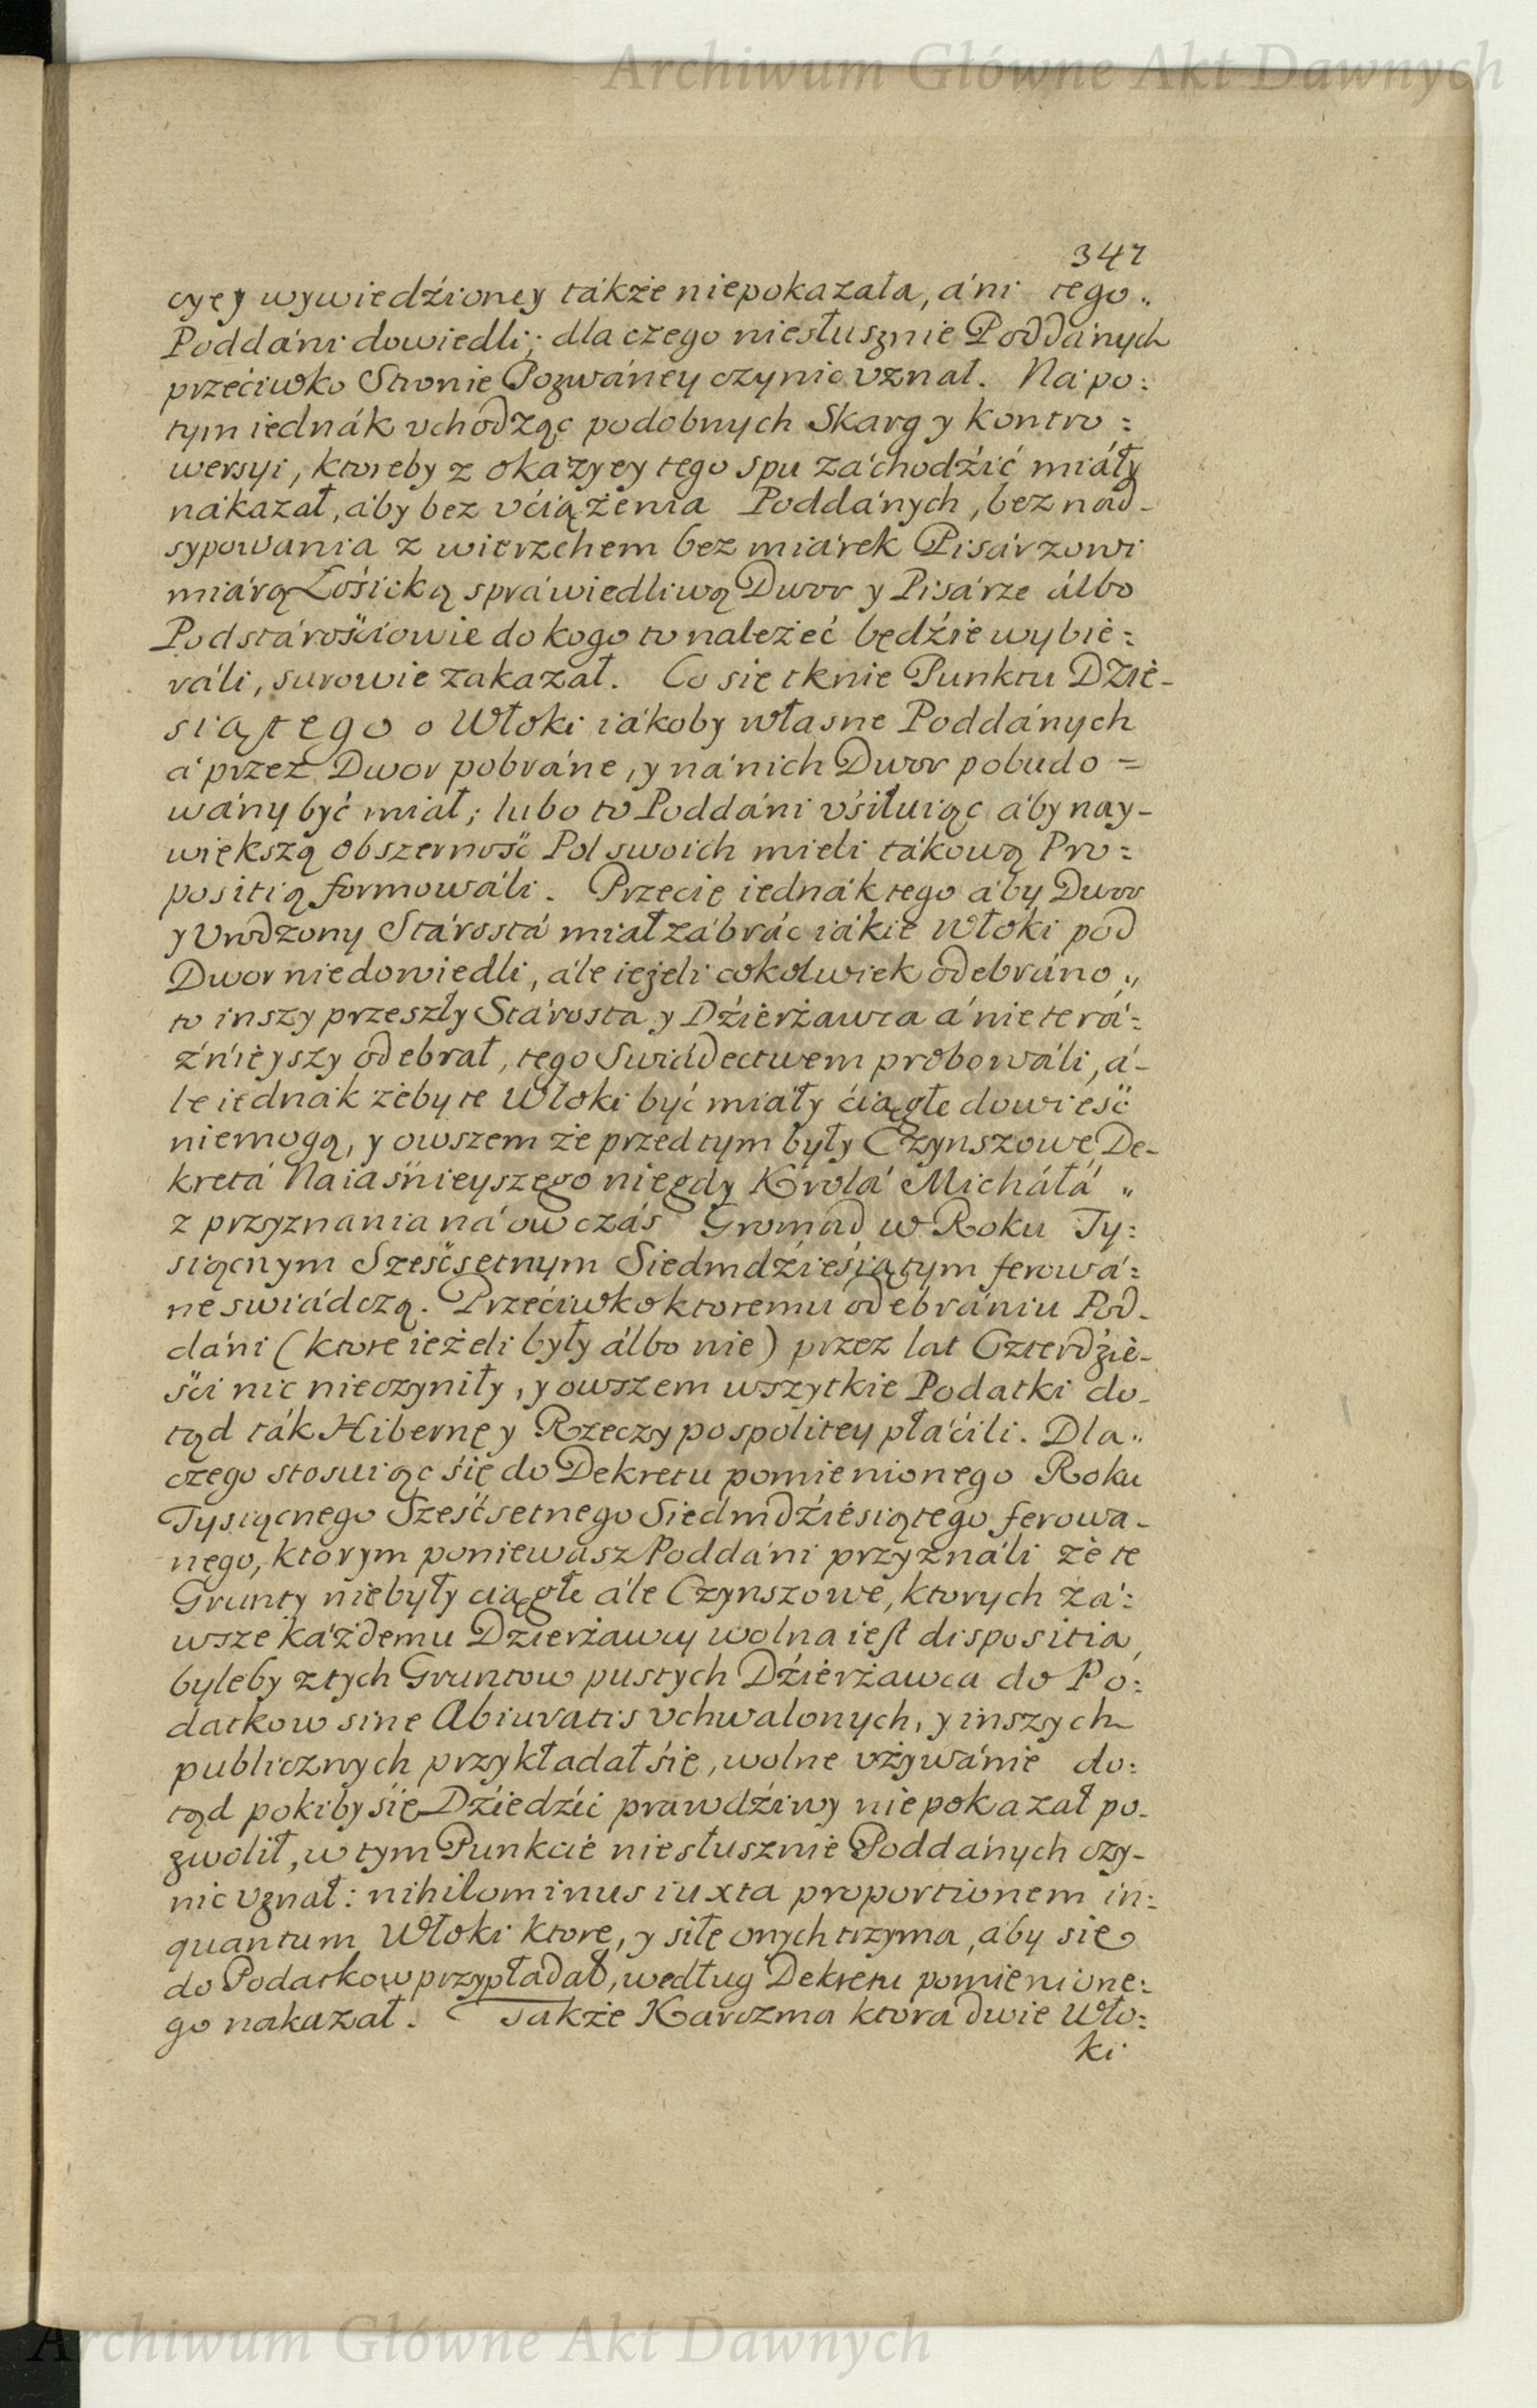 Archiwum Główne Akt Dawnych
347
cyey wywiedźioney tákże niepokazała, áni tego„
Poddáni dowiedli; dla czego niesłusznie Poddánych
przećiwko Stronie Pozwáney czynic vznał. Ná po:
tym iednák vchodząc podobnych Skarg y kontro:
wersyi, ktoreby z okázyey tego spu záchodźić miáły
nakazał, áby bez vćiążenia Poddánych, bez nad-
sypowania z wierzchem bez miárek Pisárzowi
miárą Łośicką spráwiedliwą Dwor y Pisárze álbo
Podstárośćiowie do kogo to należeć będźie wybie:
ráli, surowie zakazał. Co się tknie Punktu Dzie-
siątego o Włoki iákoby własne Poddánych
á przez Dwor pobráne, y ná nich Dwor pobudo=
wány być miał; lubo to Poddáni vśiłuiąc áby nay-
większą obszerność Pol swoich mieli tákową Pro:
positią formowáli. Przecię iednák tego áby Dwor
y Urodzony Stárostá miał zábrác iákie Włoki pod
Dwor niedowiedli, ále ieżeli cokolwiek odebráno„
to inszy przeszły Stárosta y Dźierżawca á nie terá:
źńieyszy odebrał, tego Swiádectwem probowáli, á-
le iednák żeby te Włoki być miáły ćiągłe dowieść
niemogą, y owszem że przed tym były Czynszowe De-
kretá Naiaśnieyszego niegdy Krolá Micháłá„
z przyznania ná ow czás Gromad w Roku Ty:
siącnym Sześćsetnym Siedmdźieśiątym ferowá:
ne swiádczą. Przećiwko ktoremu odebrániu Pod-
dáni (ktore ieżeli były álbo nie) przez lat Czterdźie-
śći nic nieczyniły, y owszem wszytkie Podatki do-
tąd ták Hibernę y Rzeczypospolitey płáćili. Dla„
czego stosuiąc się do Dekretu pomienionego Roku
Tysiącnego Sześćsetnego Siedmdźiesiątego ferowa-
nego, ktorym poniewász Poddáni przyználi że te
Grunty niebyły ciągłe ále Czynszowe, ktorych zá:
wsze káżdemu Dzierżawcy wolna iest dispositia,
byleby z tych Gruntow pustych Dźierżawca do Po:
datkow sine Abiuratis vchwalonych, y inszych
publicznych przykładał się, wolne vżywánie do:
tąd pokiby się Dźiedźić prawdźiwy niepokazał po-
zwolił, w tym Punkcie niesłusznie Poddánych czy-
nic vznał: nihilominus iuxta proportionem in:
quantum Włoki ktore, y siłę onych trzyma, áby się
do Podatkow przypładał, według Dekretu pomienione:
go nakazał. Tákże Karczma ktora dwie Wło:
ki
Archiwum Główne Akt Dawnych